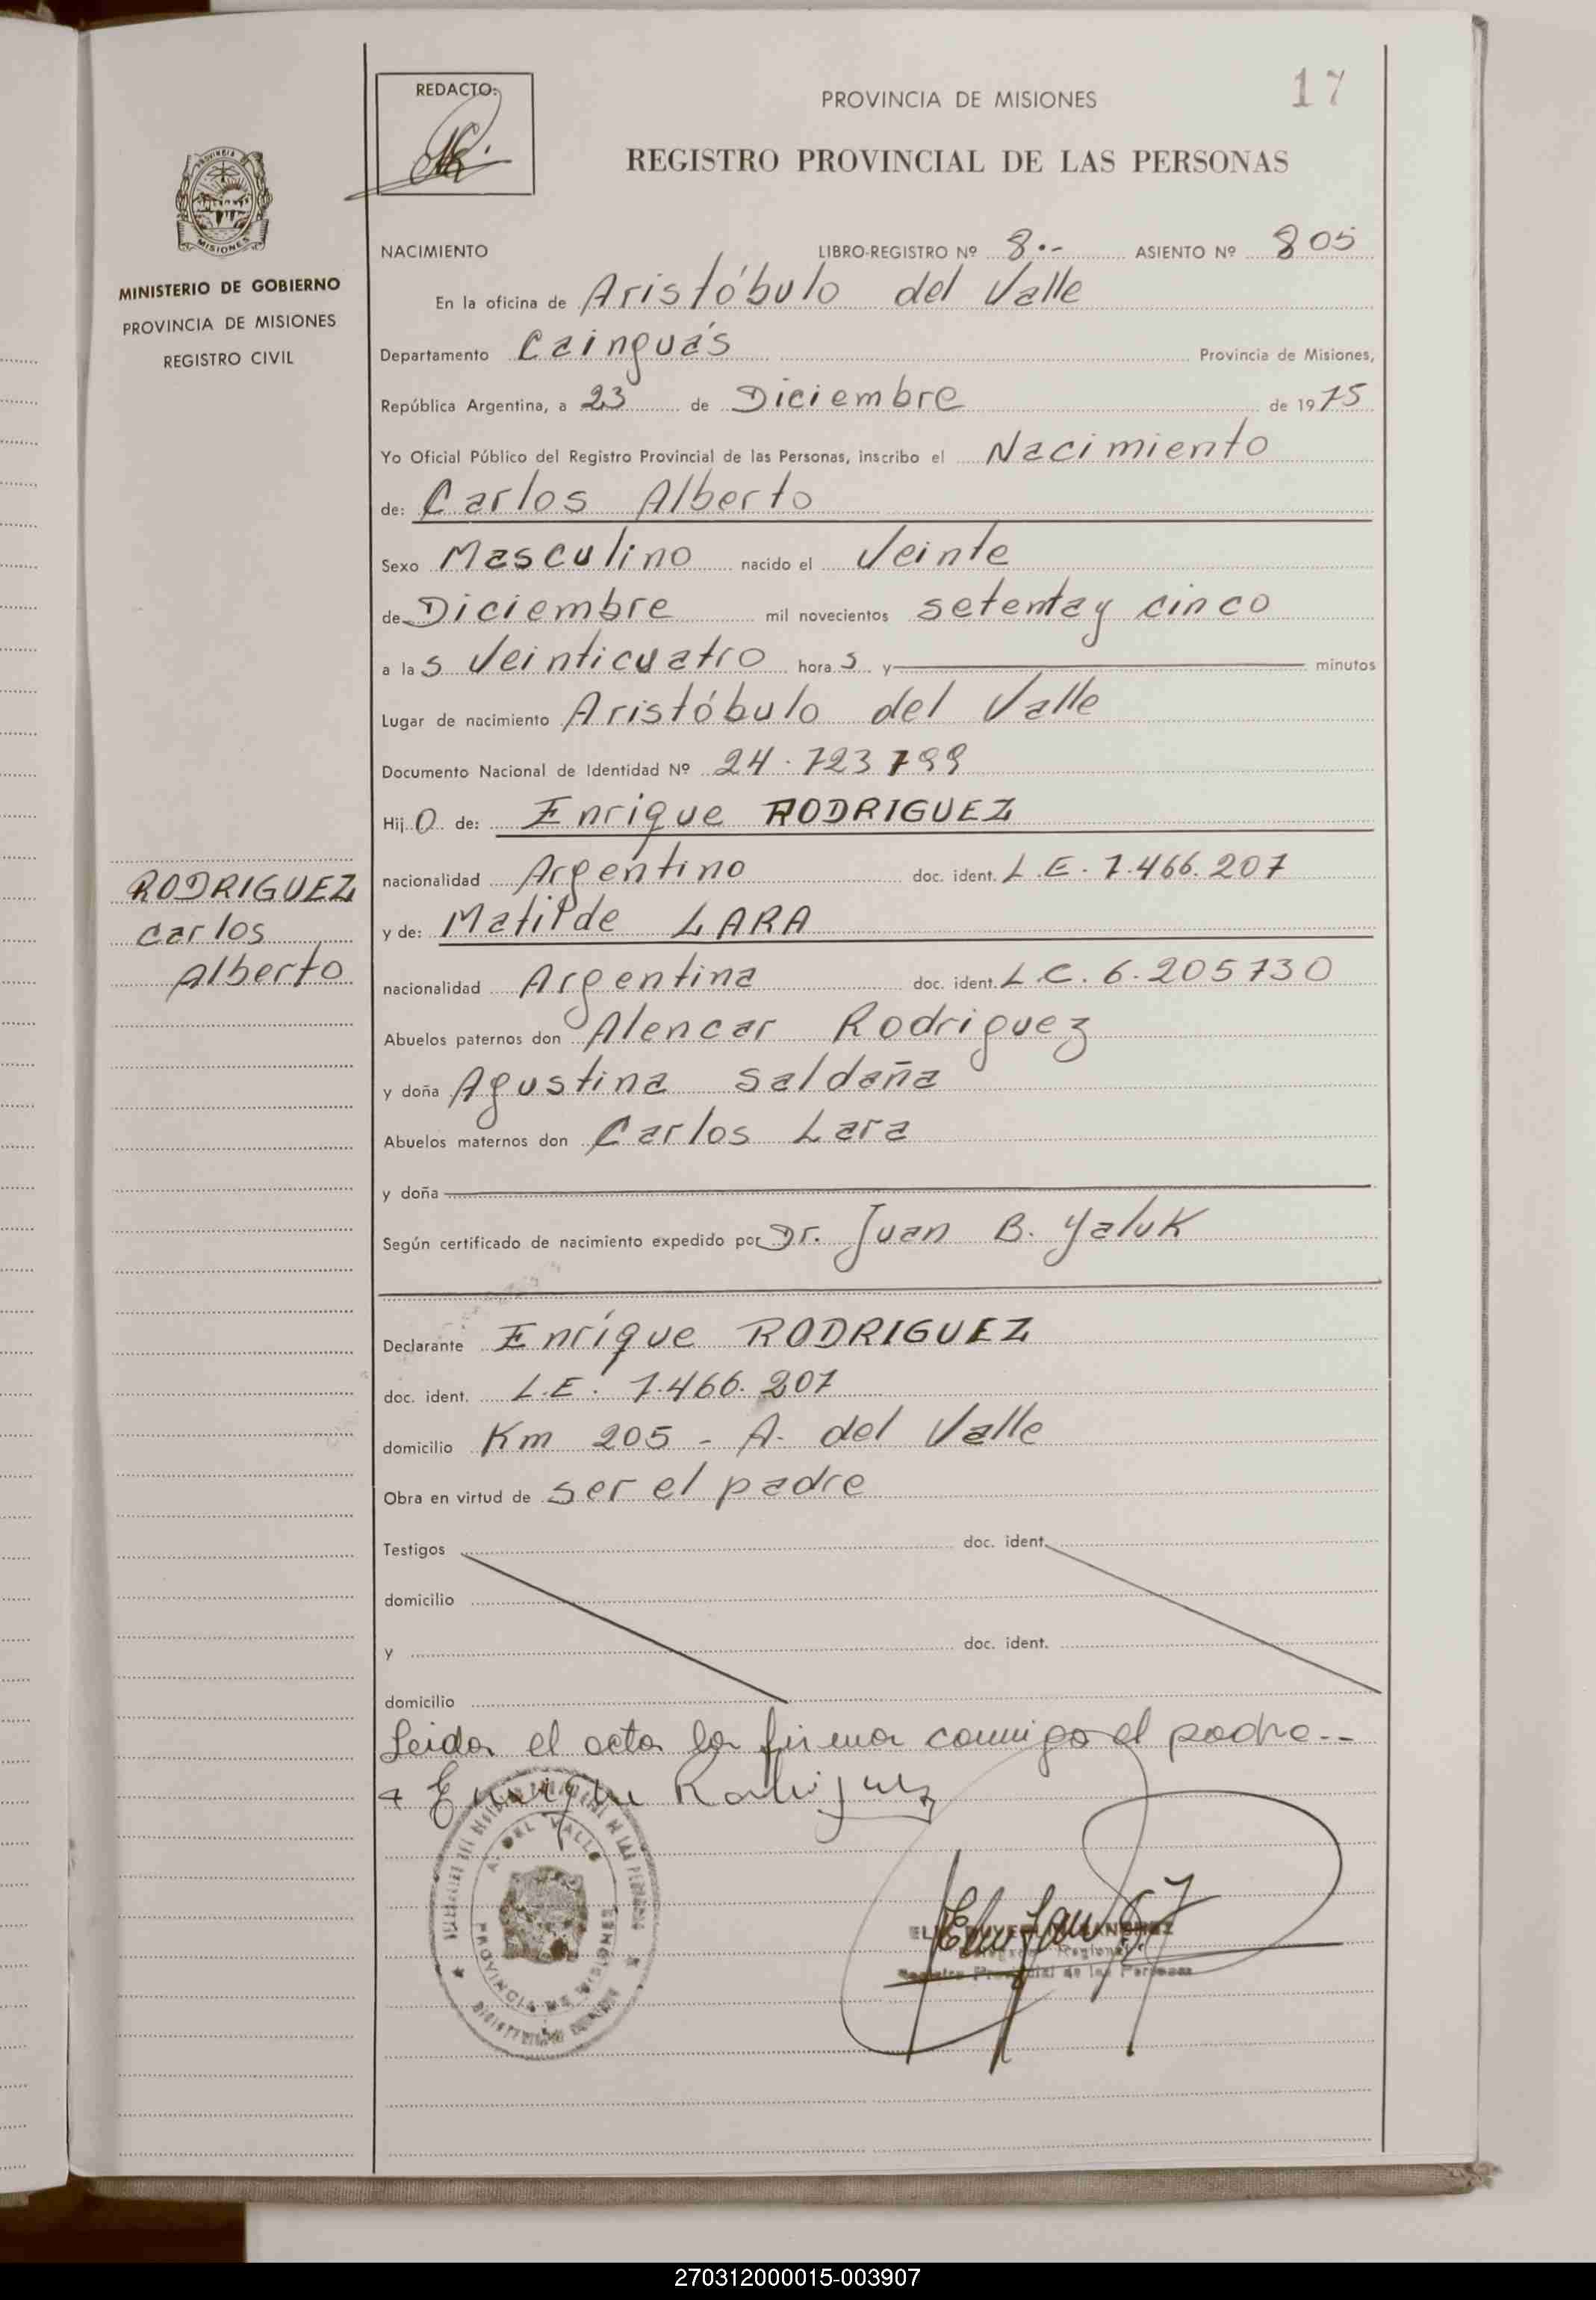 REDACTO:
PROVINCIA DE MISIONES
17
REGISTRO PROVINCIAL DE LAS PERSONAS
PROVINCIA
MISIONES
MINISTERIO DE GOBIERNO
PROVINCIA DE MISIONES
REGISTRO CIVIL
NACIMIENTO LIBRO-REGISTRO Nº 8.- ASIENTO Nº 805
En la oficina de Aristóbulo del Valle
Departamento Cainguás Provincia de Misiones,
República Argentina, a 23 de Diciembre de 1975
Yo Oficial Público del Registro Provincial de las Personas, inscribo el Nacimiento
de: Carlos Alberto
Sexo Masculino nacido el Veinte
de Diciembre mil novecientos setenta y cinco
a las Veinticuatro horas y minutos
Lugar de nacimiento Aristóbulo del Valle
Documento Nacional de Identidad Nº 24.723799
Hijo de: Enrique RODRIGUEZ
nacionalidad Argentino doc. ident. L.E. 7.466.207
y de: Matilde LARA
nacionalidad Argentina doc. ident. L.C. 6.205730
RODRIGUEZ
Carlos
Alberto
Abuelos paternos don Alencar Rodriguez
y doña Agustina Saldaña
Abuelos maternos don Carlos Lara
y doña
Según certificado de nacimiento expedido por Dr. Juan B. Yaluk
Declarante Enrique RODRIGUEZ
doc. ident. L.E. 7.466.207
domicilio Km 205 - A. del Valle
Obra en virtud de ser el padre
Testigos doc. ident.
domicilio
y doc. ident.
domicilio
Leida el acta la firma conmigo el padre.--
Enrique Rodriguez
A. DEL VALLE
PROVINCIA DE MISIONES
SANCHEZ
Regional
Registro Provincial de las Personas
270312000015-003907